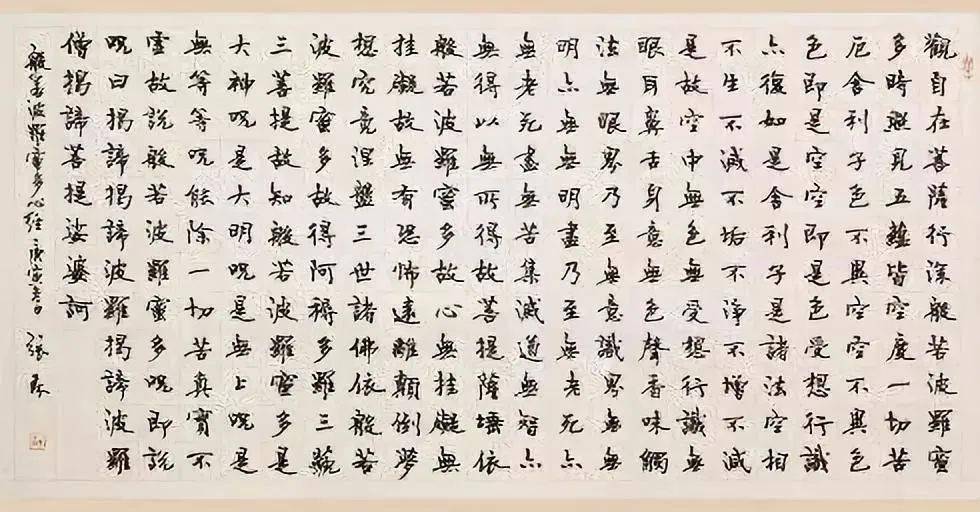 觀自在菩薩行深般若波羅蜜
多時照見五蘊皆空度一切苦
厄舍利子色不異空空不異色
色即是空空即是色受想行識
亦復如是舍利子是諸法空相
不生不滅不垢不淨不增不減
是故空中無色無受想行識無
眼耳鼻舌身意無色聲香味觸
法無眼界乃至無意識界無無
明亦無無明盡乃至無老死亦
無老死盡無苦集滅道無智亦
無得以無所得故菩提薩埵依
般若波羅蜜多故心無挂礙無
挂礙故無有恐怖遠離顛倒夢
想究竟涅盤三世諸佛依般若
波羅蜜多故得阿耨多羅三藐
三菩提故知般若波羅蜜多是
大神呪是大明呪是無上呪是
無等等呪能除一切苦真實不
虛故說般若波羅蜜多呪即說
呪曰揭諦揭諦波羅揭諦波羅
僧揭諦菩提娑婆訶
般若波羅蜜多心經 庚寅 張